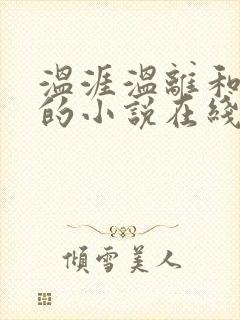 温涯温離和
的小説在綫
傾雪美人